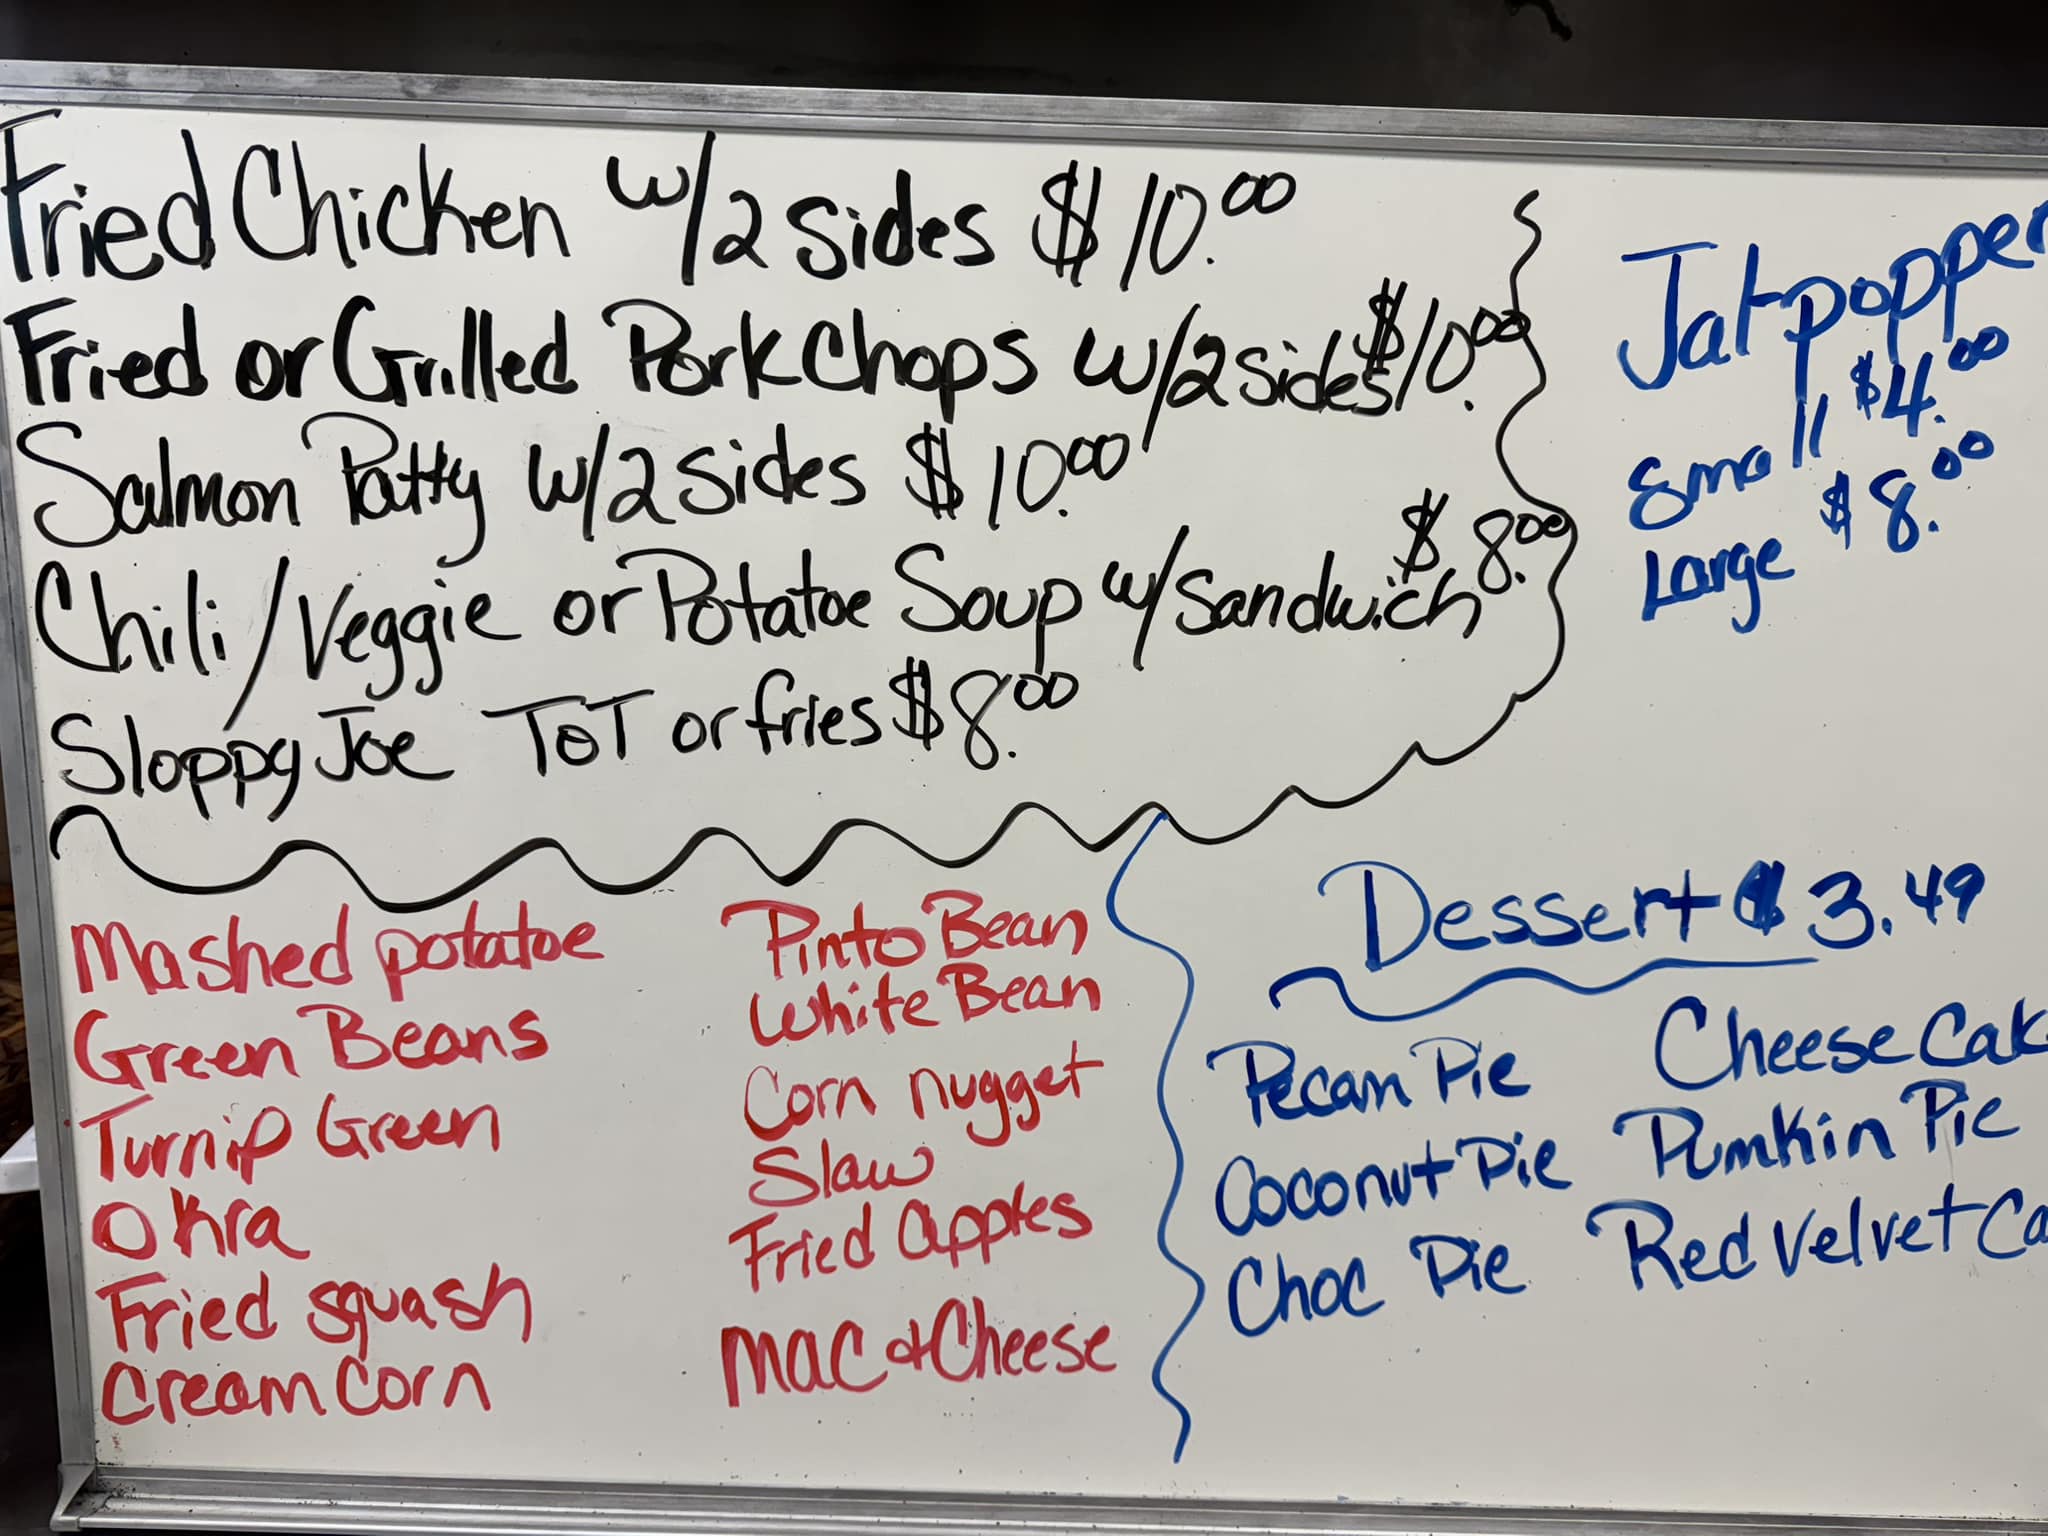 Fried Chicken w/2 sides $10.00
Fried or Grilled Pork Chops w/2 sides $10.00
Salmon Patty w/2 sides $10.00
Chili/Veggie or Potatoe Soup w/Sandwich $8.00
Sloppy Joe TOT or fries $8.00
Jal-popper
Small $4.00
Large $8.00
Mashed potatoe
Green Beans
Turnip Green
Okra
Fried squash
Cream Corn
Pinto Bean
White Bean
Corn nugget
Slaw
Fried apples
Mac & Cheese
Dessert $3.49
Pecan Pie
Coconut Pie
Choc Pie
Cheese Cak
Pumkin Pie
Red Velvet Ca